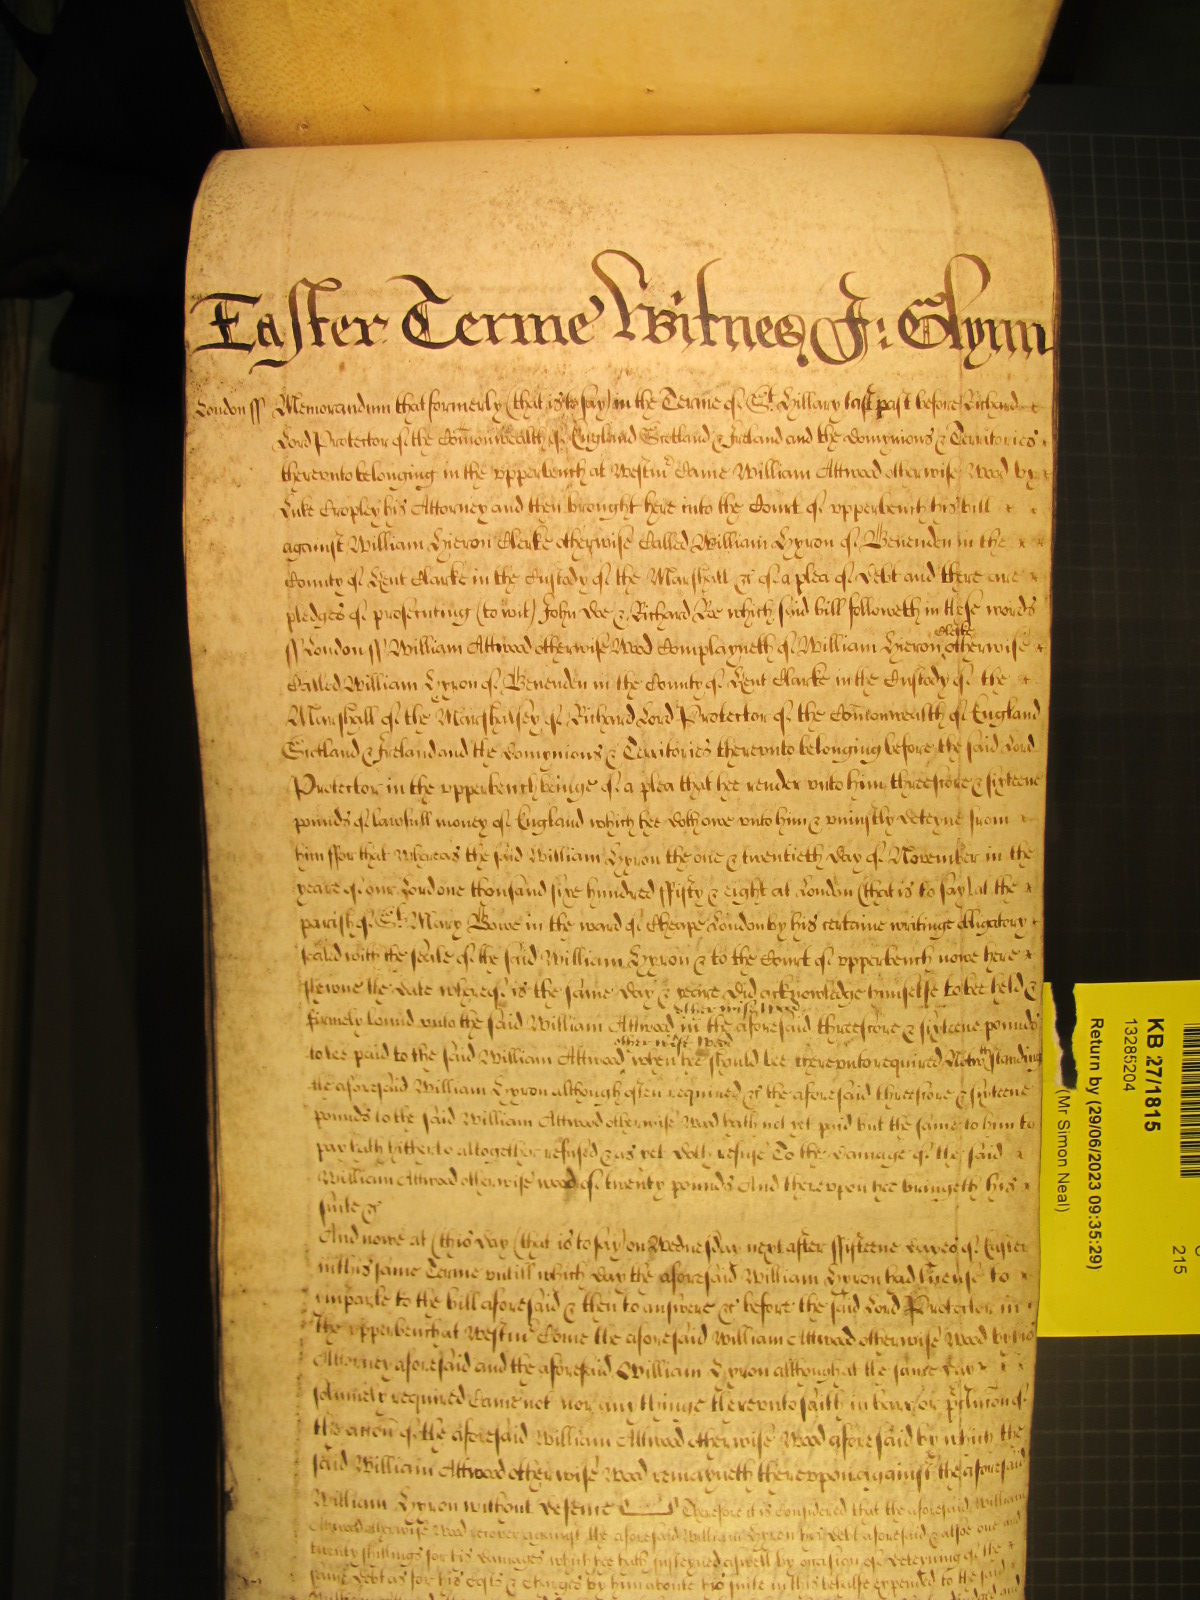 Easter Terme Witnes J: Glynn
London ss Memorandum that formerly (that is to say) in the Terme of St. Hillary last past before Richard
Lord Protector of the Comonwealth of England Scotland & Ireland and the dominions & Territories
thereunto belonging in the upperbench at Westmr Came William Attwood otherwise Wood by
Luke Cropley his Attorney and then brought here into the Court of upperbench his bill
against William Hieron Clerke otherwise Called William Hyron of Benenden in the
County of Kent Clarke in the Custody of the Marshall &c of a plea of debt and there are
pledges of prosecuting (to wit) John Doe & Richard Roe which said bill followeth in these words
ss London ss William Attwood otherwise Wood Complayneth of William Hieron Clerke otherwise
Called William Hyron of Benenden in the County of Kent Clarke in the Custody of the
Marshall of the Marshalsey of Richard Lord Protector of the Comonwealth of England
Scotland & Ireland and the domynions & Territories thereunto belonging before the said Lord
Protector in the upperbench beinge of a plea that hee render unto him threescore & sixteene
pounds of lawfull money of England which hee doth owe unto him & uniustly deteyne from
him ffor that Whereas the said William Hyron the one & twentieth day of November in the
yeare of our Lord one thousand sixe hundred ffifty & eight at London (that is to say) at the
parish of St. Mary Bowe in the ward of Cheape London by his certaine writinge obligatory
sealed with the seale of the said William Hyron & to the Court of upperbench nowe here
shewne the date whereof is the same day & yeare did acknowledge himselfe to bee held &
firmely bound unto the said William Attwood otherwise Wood in the aforesaid threescore & sixteene pounds
to bee paid to the said William Attwood otherwise Wood when hee should bee thereunto required Notwthstanding
the aforesaid William Hyron although often required &c the aforesaid threescore & sixteene
pounds to the said William Attwood otherwise Wood hath not yet paid but the same to him to
pay hath hitherto altogether refused & as yet doth refuse To the damage of the said
William Attwood otherwise wood of twenty pounds And thereupon hee bringeth his
suite &c
And nowe at (this day (that is to say) on Wednesday next after ffifteene dayes of Easter
in this same Terme untill which day the aforesaid William Hyron had lycense to
imparle to the bill aforesaid & then to answere &c before the said Lord Protector in
the upperbench at Westmr Come the aforesaid William Attwood otherwise Wood by his
Attorney aforesaid and the aforesaid William Hyron although at the same day
solemnely required Came not nor any thinge thereunto saith in barr or
the action of the aforesaid William Attwood otherwise Wood aforesaid by which the
said William Attwood otherwise Wood remayneth thereupon against the aforesaid
William Hyron without defence Therefore it is Considered that the aforesaid William
Attwood otherwise Wood recover against the aforesaid William Hyron his debt aforesaid & alsoe one and
twenty shillings for his damages which hee hath susteyned aswell by occasion of deteyning of the
same debt as for his costs & Charges by him aboute his suite in this behalfe expended to the said
KB 27/1815
13285204
Return by (29/06/2023 09:35:29)
(Mr Simon Neal)
215